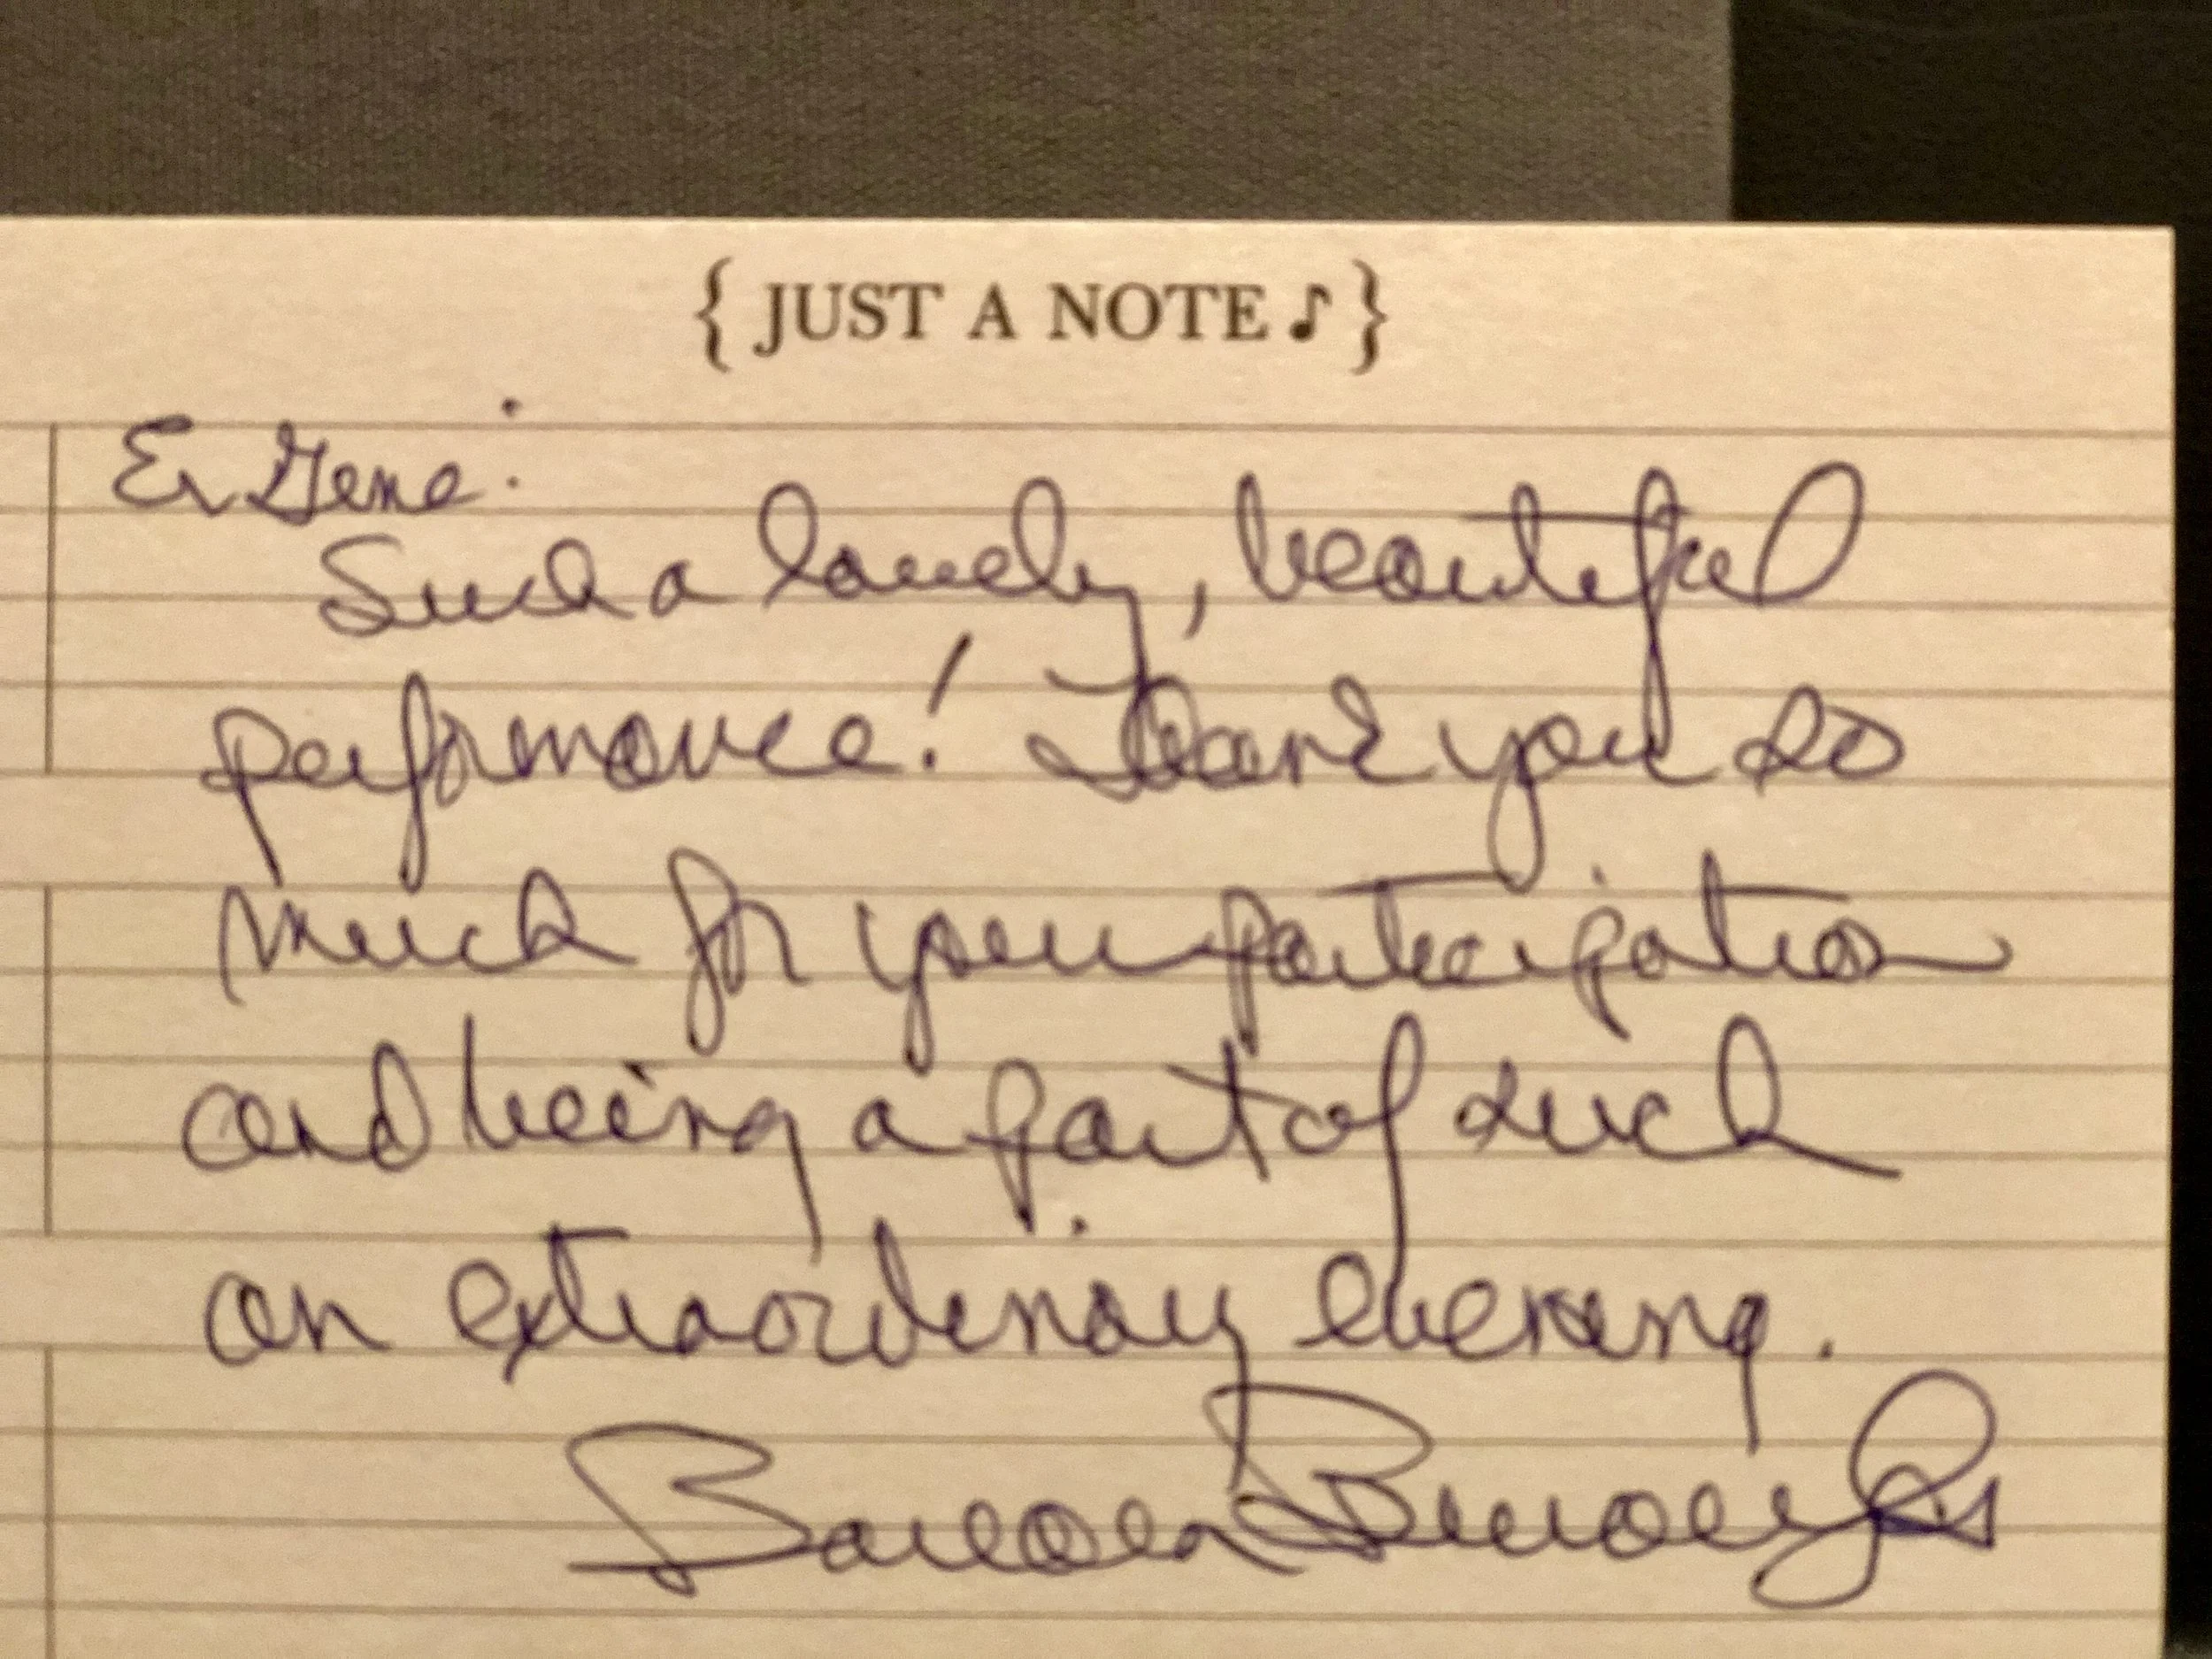 { JUST A NOTE ♪ }
Er Gene:
Such a lovely, beautiful
performance! Thank you so
much for your participation
and being a part of such
an extraordinary evening.